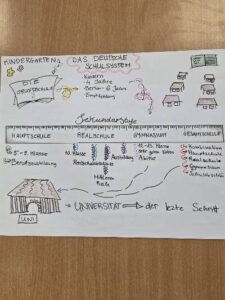 KINDERGARTEN
DAS DEUTSCHE
SCHULSYSTEM
DIE
GRUNDSCHULE
- Kindern
- 4 Jahre
- Berlin - 6 Jahre
- Empfehlung
Sekundarstufe
HAUPTSCHULE
REALSCHULE
GYMNASIUM
GESAMTSCHULE
5.-9. Klasse
Berufsausbildung
10. Klasse
Realschulabschluss
Ausbildung
Mittlere
Reife
12.-13. Klasse
sehr gute Noten
Abitur
Kombination
Hauptschule
Realschule
Gymnasium
UNI
UNIVERSITÄT ⇒ der lezte Schritt